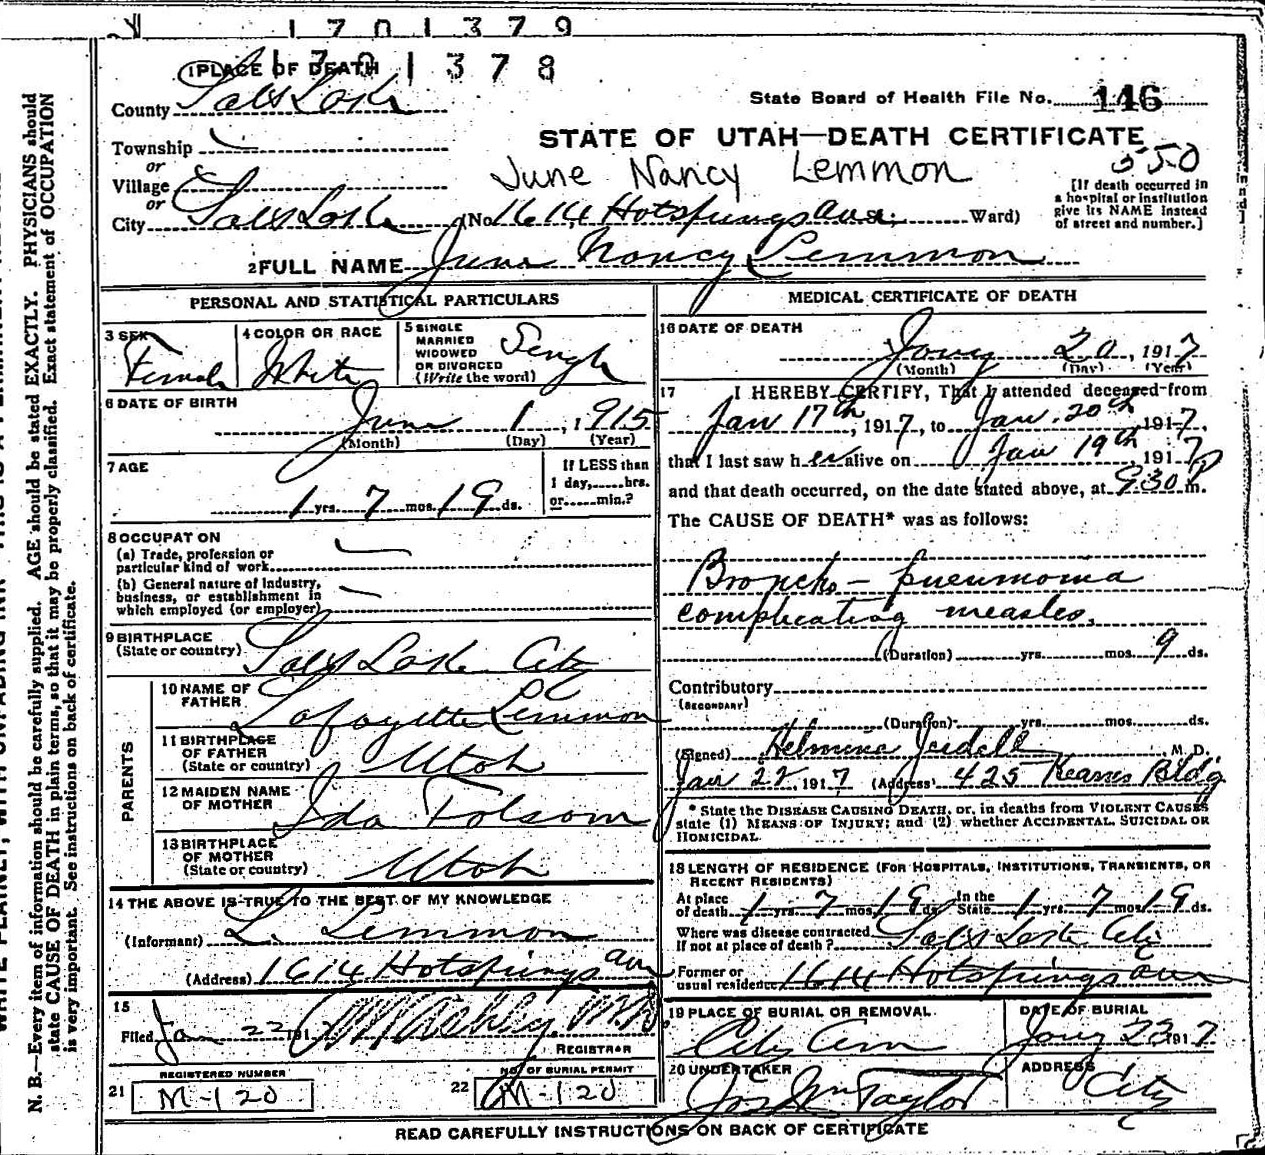 1701379
1701378
1 PLACE OF DEATH
County Salt Lake
State Board of Health File No. 146
STATE OF UTAH—DEATH CERTIFICATE
Township
or
Village
or
City Salt Lake (No. 1614 Hotsprings ave. Ward)
June Nancy Lemmon
550
[If death occurred in
a hospital or institution
give its NAME instead
of street and number.]
2 FULL NAME June Nancy Lemmon
PERSONAL AND STATISTICAL PARTICULARS
3 SEX Female
4 COLOR OR RACE White
5 SINGLE
MARRIED
WIDOWED
OR DIVORCED
(Write the word) Single
6 DATE OF BIRTH
June 1, 1915
(Month) (Day) (Year)
7 AGE
1 yrs. 7 mos. 19 ds.
If LESS than
1 day,......hrs.
or......min.?
8 OCCUPATION
(a) Trade, profession or
particular kind of work
(b) General nature of industry,
business, or establishment in
which employed (or employer)
9 BIRTHPLACE
(State or country) Salt Lake City
PARENTS
10 NAME OF
FATHER Lafayette Lemmon
11 BIRTHPLACE
OF FATHER
(State or country) Utah
12 MAIDEN NAME
OF MOTHER Ida Folsom
13 BIRTHPLACE
OF MOTHER
(State or country) Utah
14 THE ABOVE IS TRUE TO THE BEST OF MY KNOWLEDGE
(Informant) L. Lemmon
(Address) 1614 Hotsprings ave
15
Filed Jan 22 1917 Ashley M.D.
REGISTRAR
REGISTERED NUMBER
21 M-120
NO. OF BURIAL PERMIT
22 M-120
MEDICAL CERTIFICATE OF DEATH
16 DATE OF DEATH
Jany 20, 1917
(Month) (Day) (Year)
17 I HEREBY CERTIFY, That I attended deceased from
Jan 17th, 1917, to Jan. 20th 1917,
that I last saw her alive on Jan 19th 1917
and that death occurred, on the date stated above, at 9:30 P m.
The CAUSE OF DEATH* was as follows:
Broncho-pneumonia
complicating measles.
(Duration) yrs. mos. 9 ds.
Contributory
(SECONDARY)
(Duration) yrs. mos. ds.
(Signed) M. D.
Jan 22, 1917 (Address) 425 Kearns Bldg
* State the DISEASE CAUSING DEATH, or, in deaths from VIOLENT CAUSES
state (1) MEANS OF INJURY; and (2) whether ACCIDENTAL, SUICIDAL OR
HOMICIDAL.
18 LENGTH OF RESIDENCE (FOR HOSPITALS, INSTITUTIONS, TRANSIENTS, OR
RECENT RESIDENTS)
At place
of death 1 yrs. 7 mos. 19 ds. In the
State 1 yrs. 7 mos. 19 ds.
Where was disease contracted
If not at place of death? Salt Lake City
Former or
usual residence 1614 Hotsprings ave
19 PLACE OF BURIAL OR REMOVAL
City Cem
DATE OF BURIAL
Jany 23 1917
20 UNDERTAKER
Jos Wm Taylor
ADDRESS
City
READ CAREFULLY INSTRUCTIONS ON BACK OF CERTIFICATE
N. B.—Every item of information should be carefully supplied. AGE should be stated EXACTLY. PHYSICIANS should
state CAUSE OF DEATH in plain terms, so that it may be properly classified. Exact statement of OCCUPATION
is very important. See instructions on back of certificate.